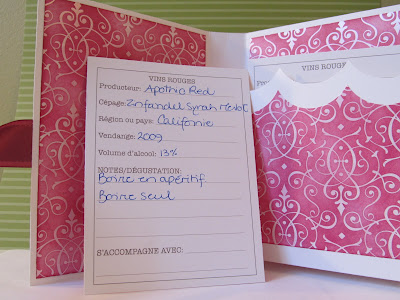 VINS ROUGES
Producteur: Apothic Red
Cépage: Zinfandel Syrah Merlot C
Région ou pays: Californie
Vendange: 2009
Volume d'alcool: 13%
NOTES/DÉGUSTATION:
Boire en apéritif
Boire seul
S'ACCOMPAGNE AVEC:
VINS ROUGE